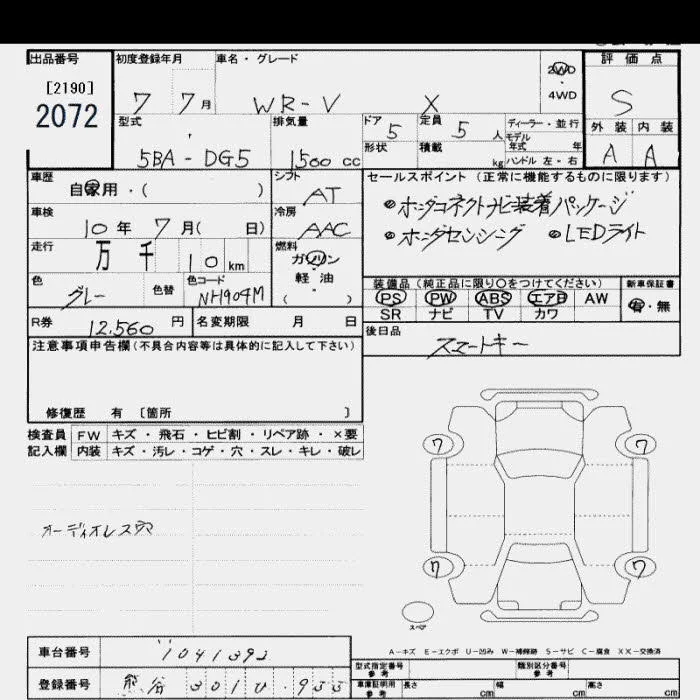 出品番号 初度登録年月 車名・グレード 評価点
[2190]
2072
7 7月 WR-V X 2WD S
4WD
型式 排気量 ドア 5 定員 5人 ディーラー・並行 外装 内装
モデル年式 年
5BA-DG5 1500cc 形状 積載 kg ハンドル 左・右 A A
車歴 シフト セールスポイント (正常に機能するものに限ります)
自家用・( ) AT
車検 冷房 ホンダコネクトナビ装着パッケージ
10年 7月( 日) AAC ホンダセンシング LEDライト
走行 万 千 10km 燃料 ガソリン
軽油
( )
装備品 (純正品に限り○をつけてください) 新車保証書
色 色替 色コード PS PW ABS エアB AW 有・無
グレー NH904M SR ナビ TV カワ
R券 12,560円 名変期限 月 日 後日品
スマートキー
注意事項申告欄(不具合内容等は具体的に記入して下さい)
修復歴 有 〔箇所 〕
検査員 FW キズ・飛石・ヒビ割・リペア跡・×要
記入欄 内装 キズ・汚レ・コゲ・穴・スレ・キレ・破レ
オーディオレス穴
7 7
7 7
スペア
A-キズ E-エクボ U-凹み W-補修跡 S-サビ C-腐食 XX-交換済
車台番号 1041392
型式指定番号 参考 類別区分番号 参考
登録番号 熊谷 301 ひ・955
車庫証明用 参考 長さ cm 幅 cm 高さ cm